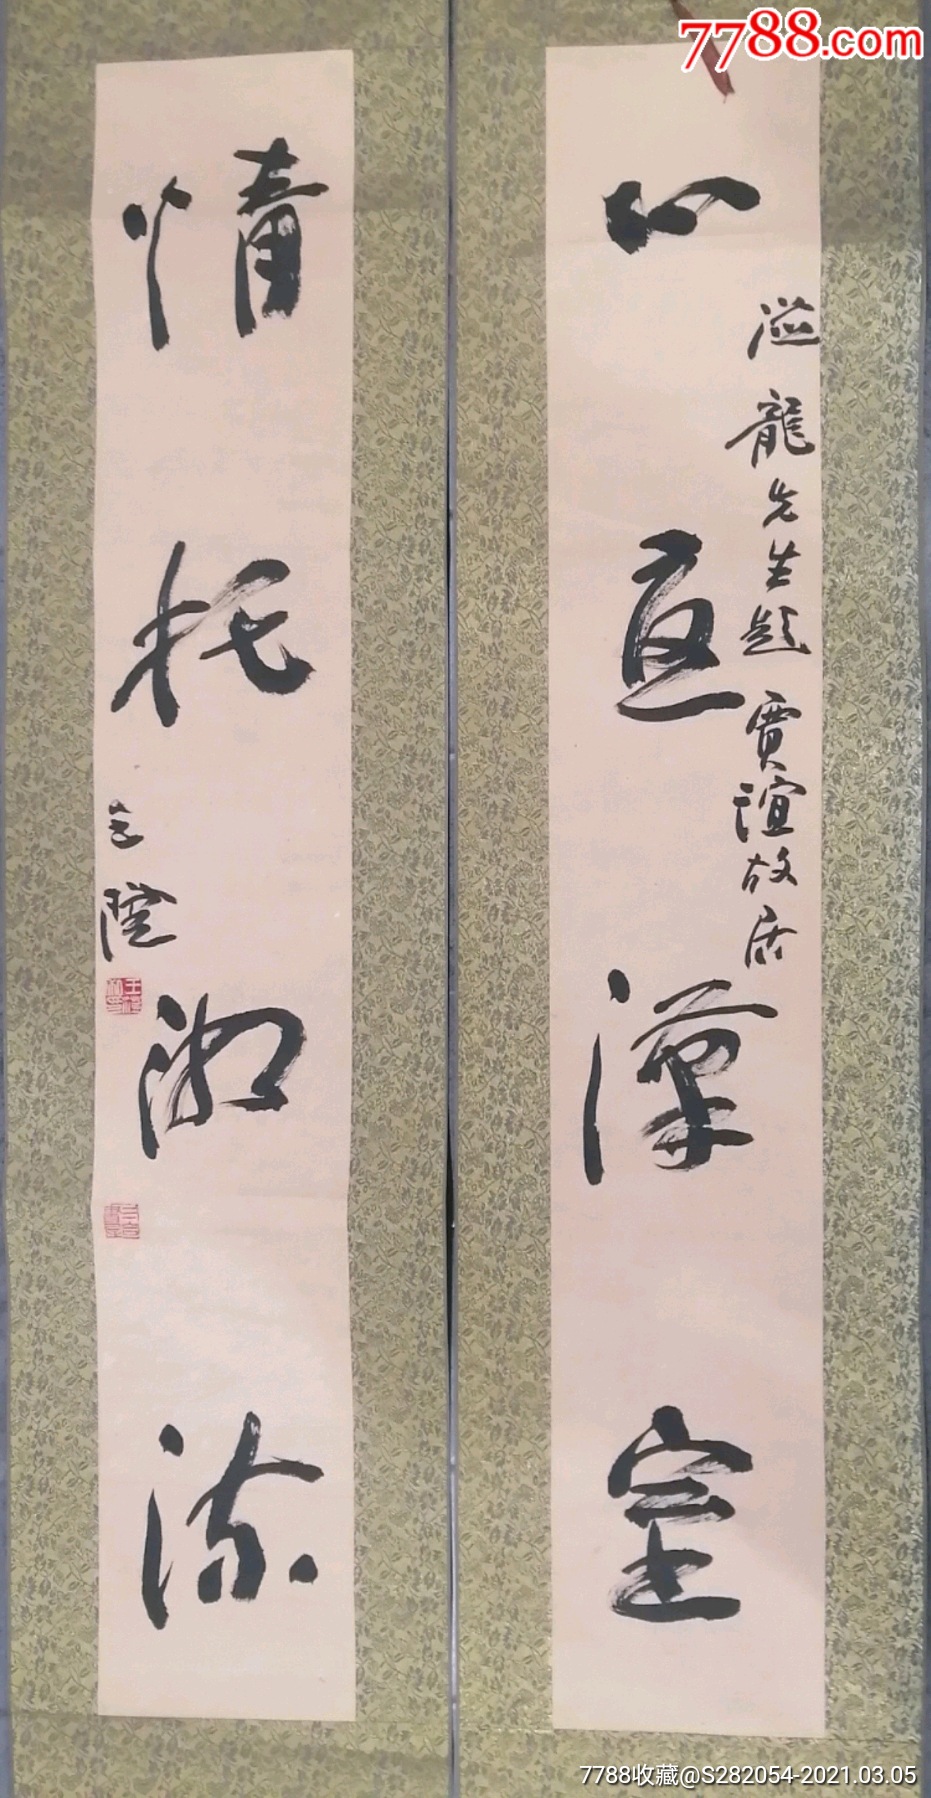 7788.com
心返漢室
溢龍先生題 賈誼故居
情托湘流
7788收藏@S282054-2021.03.05